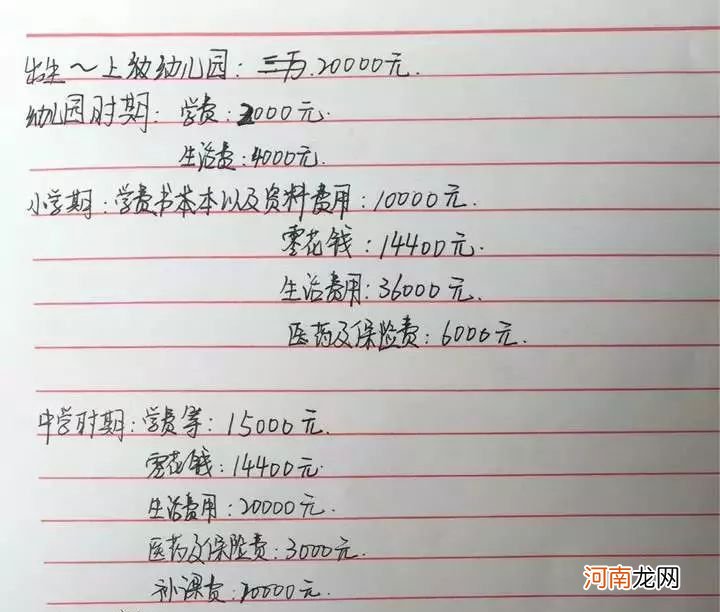 出生～上幼幼儿园：三万.20000元.
幼儿园时期：学费：2000元.
生活费：4000元.
小学期：学费书本本以及资料费用：10000元.
零花钱：14400元.
生活费用：36000元.
医药及保险费：6000元.
中学时期：学费等：15000元.
零花钱：14400元.
生活费用：20000元.
医药及保险费：3000元.
补课费：20000元.
河南龙网